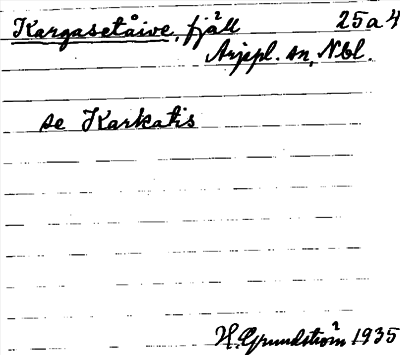 Kargasetåive, fjäll 25a4
Arjepl. sn, Nbl.
se Karkatis
H. Grundström 1935